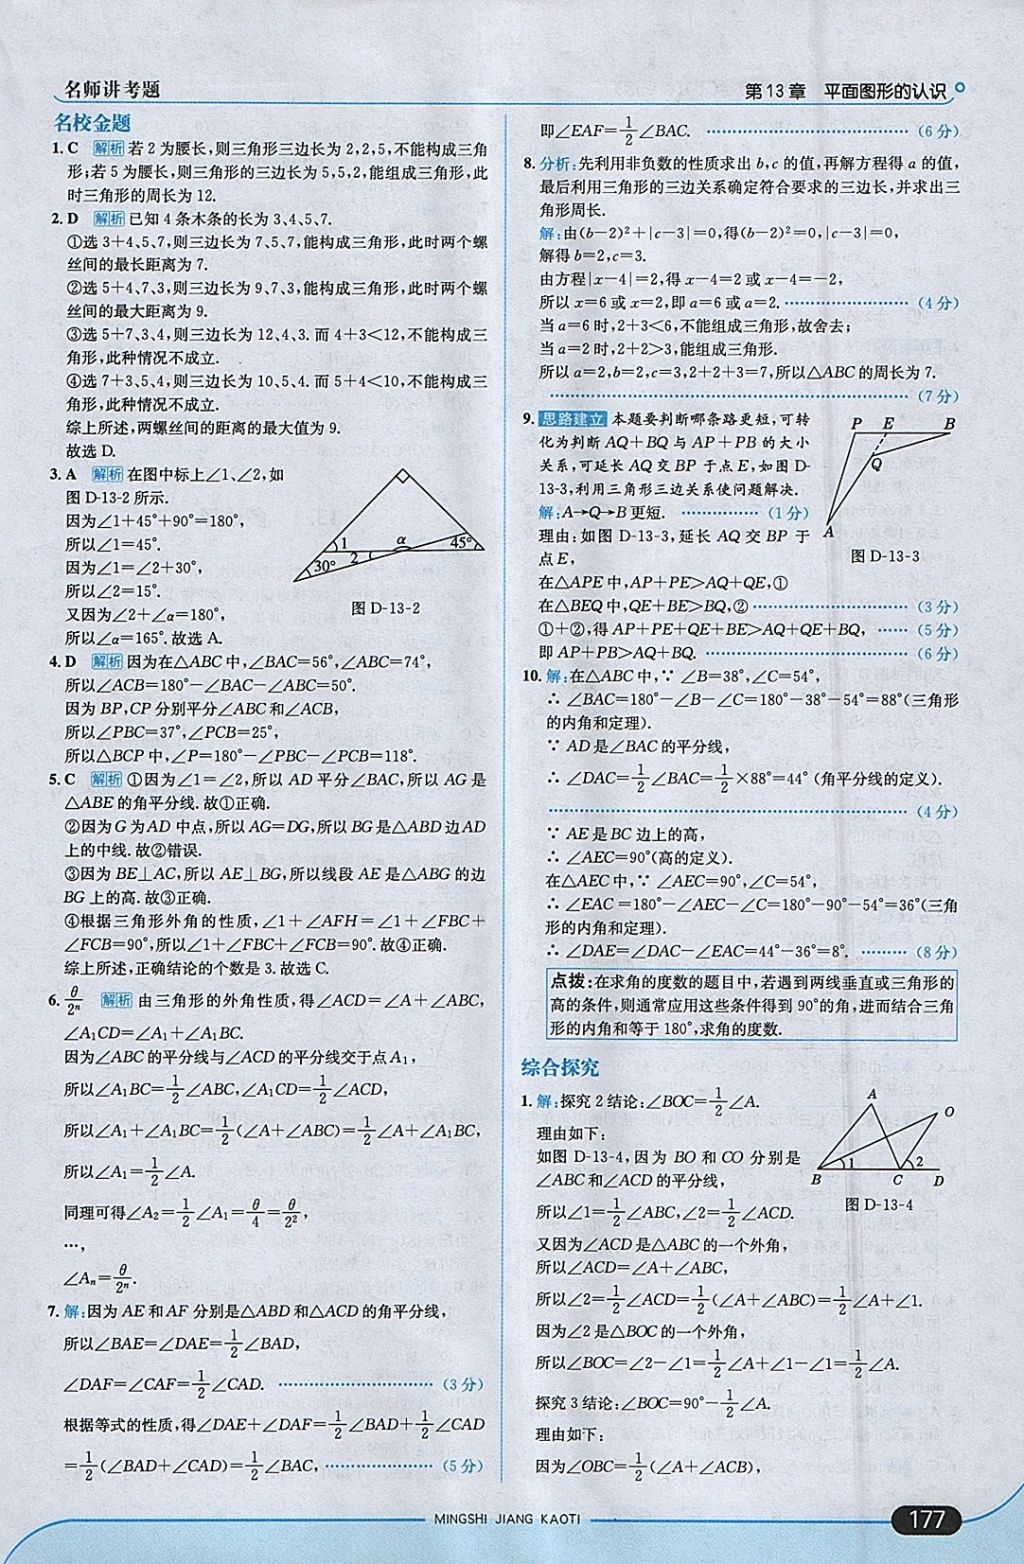 名师讲考题
第13章 平面图形的认识
名校金题
1. C 解析 若2为腰长,则三角形三边长为2,2,5,不能构成三角
形;若5为腰长,则三角形的三边长为5,5,2,能组成三角形,此
时三角形的周长为12.
2. D 解析 已知4条木条的长为3、4、5、7.
①选3+4、5、7,则三边长为7、5、7,能构成三角形,此时两个螺
丝间的最长距离为7.
②选5+4、7、3,则三边长为9、7、3,能构成三角形,此时两个螺
丝间的最大距离为9.
③选5+7、3、4,则三边长为12、4、3.而4+3<12,不能构成三
角形,此种情况不成立.
④选7+3、5、4,则三边长为10、5、4.而5+4<10,不能构成三
角形,此种情况不成立.
综上所述,两螺丝间的距离的最大值为9.
故选D.
3. A 解析 在图中标上∠1、∠2,如
图D-13-2所示.
因为∠1+45°+90°=180°,
所以∠1=45°.
因为∠1=∠2+30°,
所以∠2=15°.
又因为∠2+∠α=180°,
所以∠α=165°.故选A.
1 α 45°
2
30°
图D-13-2
4. D 解析 因为在△ABC中,∠BAC=56°,∠ABC=74°,
所以∠ACB=180°-∠BAC-∠ABC=50°.
因为BP,CP分别平分∠ABC和∠ACB,
所以∠PBC=37°,∠PCB=25°,
所以△BCP中,∠P=180°-∠PBC-∠PCB=118°.
5. C 解析 ①因为∠1=∠2,所以AD平分∠BAC,所以AG是
△ABE的角平分线.故①正确.
②因为G为AD中点,所以AG=DG,所以BG是△ABD边AD
上的中线.故②错误.
③因为BE⊥AC,所以AE⊥BG,所以线段AE是△ABG的边
BG上的高.故③正确.
④根据三角形外角的性质,∠1+∠AFH=∠1+∠FBC+
∠FCB=90°,所以∠1+∠FBC+∠FCB=90°.故④正确.
综上所述,正确结论的个数是3.故选C.
6. θ/2ⁿ 解析 由三角形的外角性质,得∠ACD=∠A+∠ABC,
∠A₁CD=∠A₁+∠A₁BC.
因为∠ABC的平分线与∠ACD的平分线交于点A₁,
所以∠A₁BC=1/2∠ABC,∠A₁CD=1/2∠ACD,
所以∠A₁+∠A₁BC=1/2(∠A+∠ABC)=1/2∠A+∠A₁BC,
所以∠A₁=1/2∠A.
同理可得∠A₂=1/2∠A₁=θ/4=θ/2²,
…,
∠Aₙ=θ/2ⁿ.
7. 解:因为AE和AF分别是△ABD和△ACD的角平分线,
所以∠BAE=∠DAE=1/2∠BAD,
∠DAF=∠CAF=1/2∠CAD. ……(3分)
根据等式的性质,得∠DAE+∠DAF=1/2∠BAD+1/2∠CAD
=1/2(∠BAD+∠CAD)=1/2∠BAC, ……(5分)
即∠EAF=1/2∠BAC. ……(6分)
8. 分析:先利用非负数的性质求出b,c的值,再解方程得a的值,
最后利用三角形的三边关系确定符合要求的三边长,并求出三
角形周长.
解:由(b-2)²+|c-3|=0,得(b-2)²=0,|c-3|=0,
解得b=2,c=3.
由方程|x-4|=2,得x-4=2或x-4=-2,
所以x=6或x=2,即a=6或a=2. ……(4分)
当a=6时,2+3<6,不能组成三角形,故舍去;
当a=2时,2+2>3,能组成三角形.
所以a=2,b=2,c=3,2+2+3=7,所以△ABC的周长为7.
……(7分)
9. 思路建立 本题要判断哪条路更短,可转
化为判断AQ+BQ与AP+PB的大小
关系,可延长AQ交BP于点E,如图D-
13-3,利用三角形三边关系使问题解决.
解:A→Q→B更短. ……(1分)
理由:如图D-13-3,延长AQ交BP于
点E,
P E B
Q
A
图D-13-3
在△APE中,AP+PE>AQ+QE,①
在△BEQ中,QE+BE>BQ,② ……(3分)
①+②,得AP+PE+QE+BE>AQ+QE+BQ, ……(5分)
即AP+PB>AQ+BQ. ……(6分)
10. 解:在△ABC中,∵∠B=38°,∠C=54°,
∴∠BAC=180°-∠B-∠C=180°-38°-54°=88°(三角形
的内角和定理).
∵AD是∠BAC的平分线,
∴∠DAC=1/2∠BAC=1/2×88°=44°(角平分线的定义).
……(4分)
∵AE是BC边上的高,
∴∠AEC=90°(高的定义).
在△AEC中,∵∠AEC=90°,∠C=54°,
∴∠EAC=180°-∠AEC-∠C=180°-90°-54°=36°(三角
形的内角和定理).
∴∠DAE=∠DAC-∠EAC=44°-36°=8°. ……(8分)
点拨:在求角的度数的题目中,若遇到两线垂直或三角形的
高的条件,则通常应用这些条件得到90°的角,进而结合三角
形的内角和等于180°,求角的度数.
综合探究
1. 解:探究2结论:∠BOC=1/2∠A.
理由如下:
如图D-13-4,因为BO和CO分别是
∠ABC和∠ACD的平分线,
所以∠1=1/2∠ABC,∠2=1/2∠ACD.
A O
1 2
B C D
图D-13-4
又因为∠ACD是△ABC的一个外角,
所以∠ACD=∠A+∠ABC,
所以∠2=1/2∠ACD=1/2(∠A+∠ABC)=1/2∠A+∠1.
因为∠2是△BOC的一个外角,
所以∠BOC=∠2-∠1=1/2∠A+∠1-∠1=1/2∠A.
探究3结论:∠BOC=90°-1/2∠A.
理由如下:
因为∠OBC=1/2(∠A+∠ACB),
MINGSHI JIANG KAOTI
177